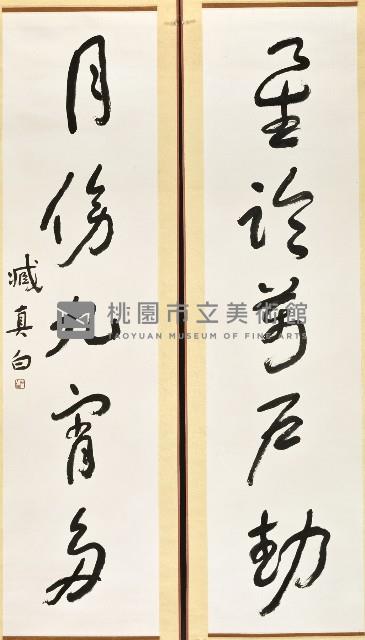 星臨萬戶動
月傍九霄多
臧真白
桃園市立美術館
TAOYUAN MUSEUM OF FINE ARTS